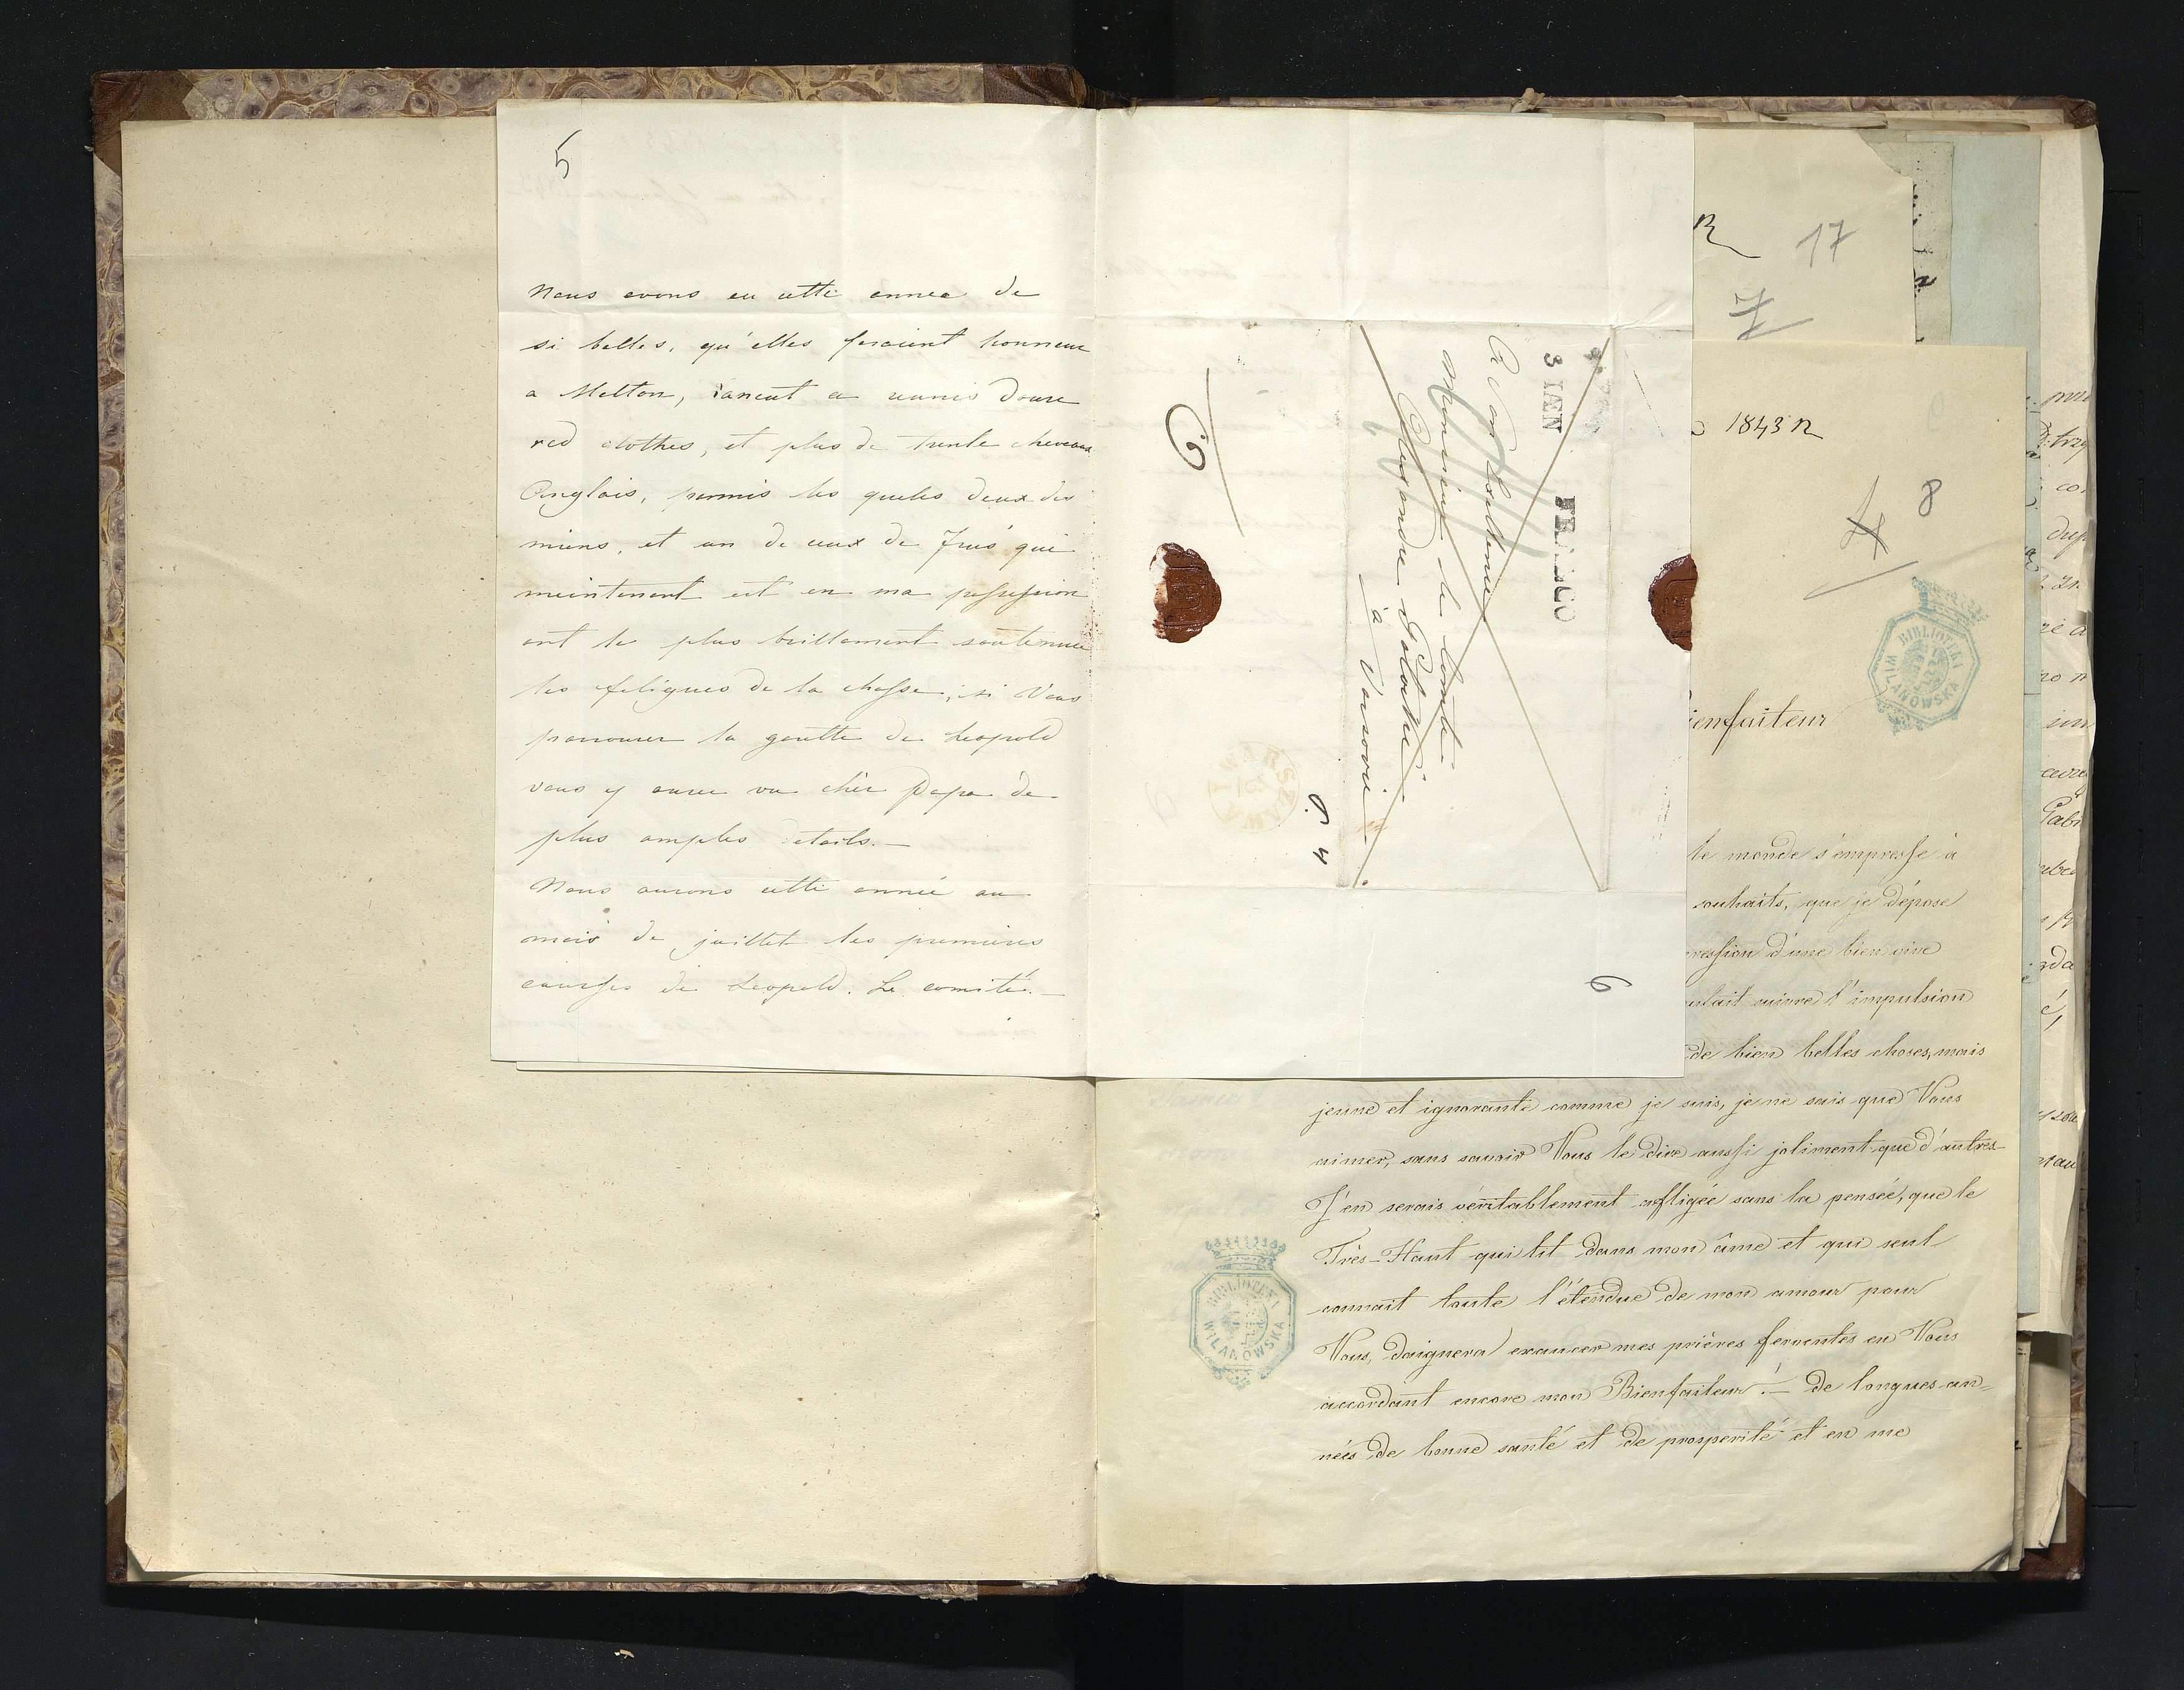 5
Nous avons eu cette annea de
si belles, qu'elles feraient honneur
a Melton, a reunis douze
red clothes, et plus de trente chevaux
Anglais, parmis les queles deux des
miens, et un de ceux de Frus qui
meintenant est en ma possession
ont le plus brillament soutenue
les fatigues de la chasse, si Vous
la gazette de Leopold
vous y aurez vu chèr Papa de
plus amples details.—
Nous aurons cette année au
mois de juillet les premieres
courses de Leopold. Le comité.—
6
A Son Excellence
Monsieur le Comte
Alexandre Potocki
à Varsovie
3 IÆN
FRANCO
WARSZAWA
6
17
7
1843 R
8
4
BIBLIOTEKI
WILANOWSKA
ienfaiteur
le monde s'empresse à
souhaits, que je dépose
ression d'une bien vive
ulait suivre l'impulsion
de bien belles choses, mais
jeune et ignorante comme je suis, je ne sais que Vous
aimer, sans savoir Vous le dire aussi joliment que d'autres
J'en serais véritablement affligée sans la pensée, que le
Très-Haut qui lit dans mon âme et qui seul
connait toute l'étendue de mon amour pour
Vous, daignera exaucer mes prières ferventes en Vous
accordant encore mon Bienfaiteur! — de longues an=
nées de bonne santé et de prosperité et en me
BIBLIOTEKI
WILANOWSKA